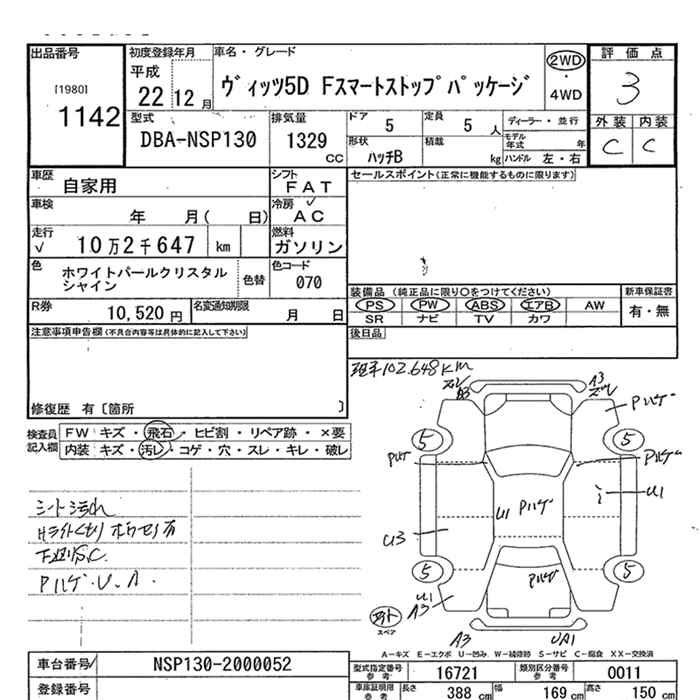 出品番号
[1980]
1142
初度登録年月
平成
22 12月
車名・グレード
ヴィッツ5D Fスマートストップパッケージ
2WD
・
4WD
評価点
3
外装 内装
C C
型式
DBA-NSP130
排気量
1329
CC
ドア
5
定員
5 人
形状
ハッチB
積載
kg
ディーラー・並行
モデル年式 年
ハンドル 左・右
車歴
自家用
シフト
FAT
車検
年 月( 日)
冷房 ✓
AC
走行
✓ 10万2千647 km
燃料
ガソリン
色
ホワイトパールクリスタル
シャイン
色替
色コード
070
R券
10,520 円
名変通知期限
月 日
セールスポイント(正常に機能するものに限ります)
装備品 (純正品に限り○をつけてください)
PS PW ABS エアB AW
SR ナビ TV カワ
新車保証書
有・無
後日品
注意事項申告欄(不具合内容等は具体的に記入して下さい)
修復歴 有〔箇所 〕
検査員
記入欄
FW キズ・飛石・ヒビ割・リペア跡・×要
内装 キズ・汚レ・コゲ・穴・スレ・キレ・破レ
シート汚れ
下廻りS.C.
Pハゲ・U.A.
102.648km
A3
A3
Pハゲ
5
5
Pハゲ
U1
U1
Pハゲ
U3
5
5
Pハゲ
U1
A3
スペア
A3
UA1
A-キズ E-エクボ U-凹み W-補修跡 S-サビ C-腐食 XX-交換済
車台番号
NSP130-2000052
登録番号
型式指定番号
参考
16721
類別区分番号
参考
0011
車庫証明用
参考
長さ
388 cm
幅
169 cm
高さ
150 cm